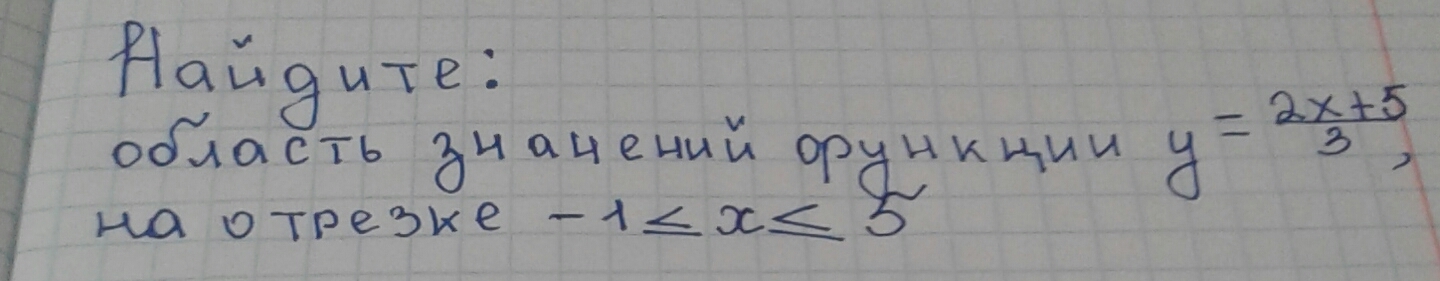 Найдите:
область значений функции y = \frac{2x+5}{3},
на отрезке -1 ≤ x ≤ 5